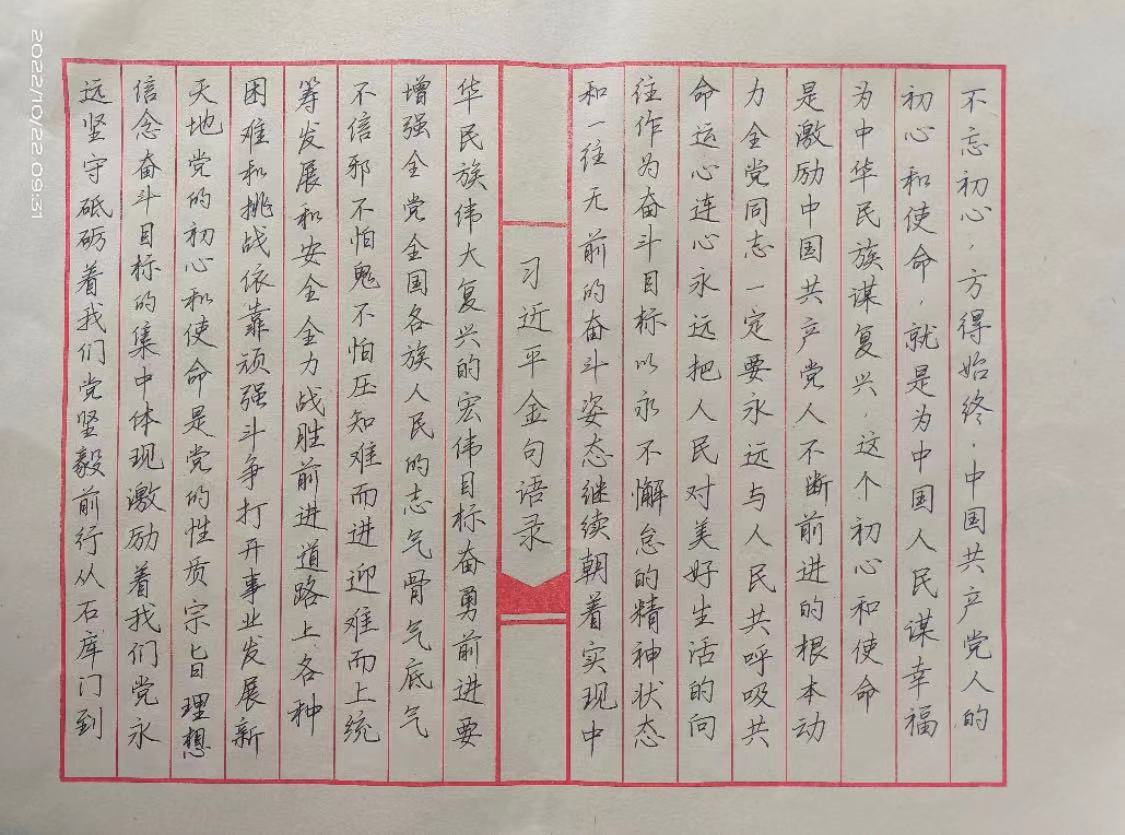 不忘初心,方得始终.中国共产党人的
初心和使命,就是为中国人民谋幸福
为中华民族谋复兴.这个初心和使命
是激励中国共产党人不断前进的根本动
力全党同志一定要永远与人民共呼吸共
命运心连心永远把人民对美好生活的向
往作为奋斗目标以永不懈怠的精神状态
和一往无前的奋斗姿态继续朝着实现中
习近平金句语录
华民族伟大复兴的宏伟目标奋勇前进要
增强全党全国各族人民的志气骨气底气
不信邪不怕鬼不怕压知难而进迎难而上统
筹发展和安全全力战胜前进道路上各种
困难和挑战依靠顽强斗争打开事业发展新
天地党的初心和使命是党的性质宗旨理想
信念奋斗目标的集中体现激励着我们党永
远坚守砥砺着我们党坚毅前行从石库门到
2022/10/22 09:31